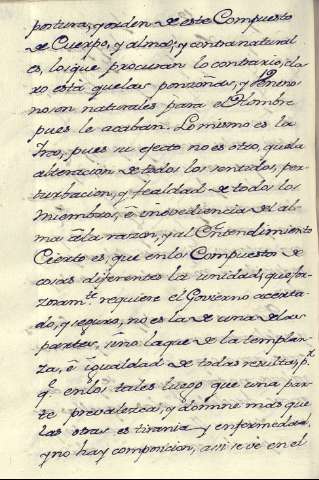 postura, y orden de este Compuesto
de Cuerpo, y alma; y contranatural
es, los que procuran lo contrario, cla
ro está que las ponzoñas, y Venenos
no son naturales para el Hombre
pues le acaban. Lo mismo es la
Ira, pues su efecto no es otro, que la
alteracion de todos los sentidos, per
turbacion, y fealdad de todos los
miembros, é inovediencia del al
ma á la razon, y al Entendimiento
Cierto es, que en los Compuestos de
cosas diferentes la unidad, que for
zosamte. requiere el Govierno acerta
do, y seguro, no es la de una de las
partes, sino la que de la templan
za, é igualdad de todas resulta, pr.
qe. en los tales luego que una par
te prevalezca, y domine mas que
las otras es tirania, y enfermedad,
y no hay composicion, asi se vé en el